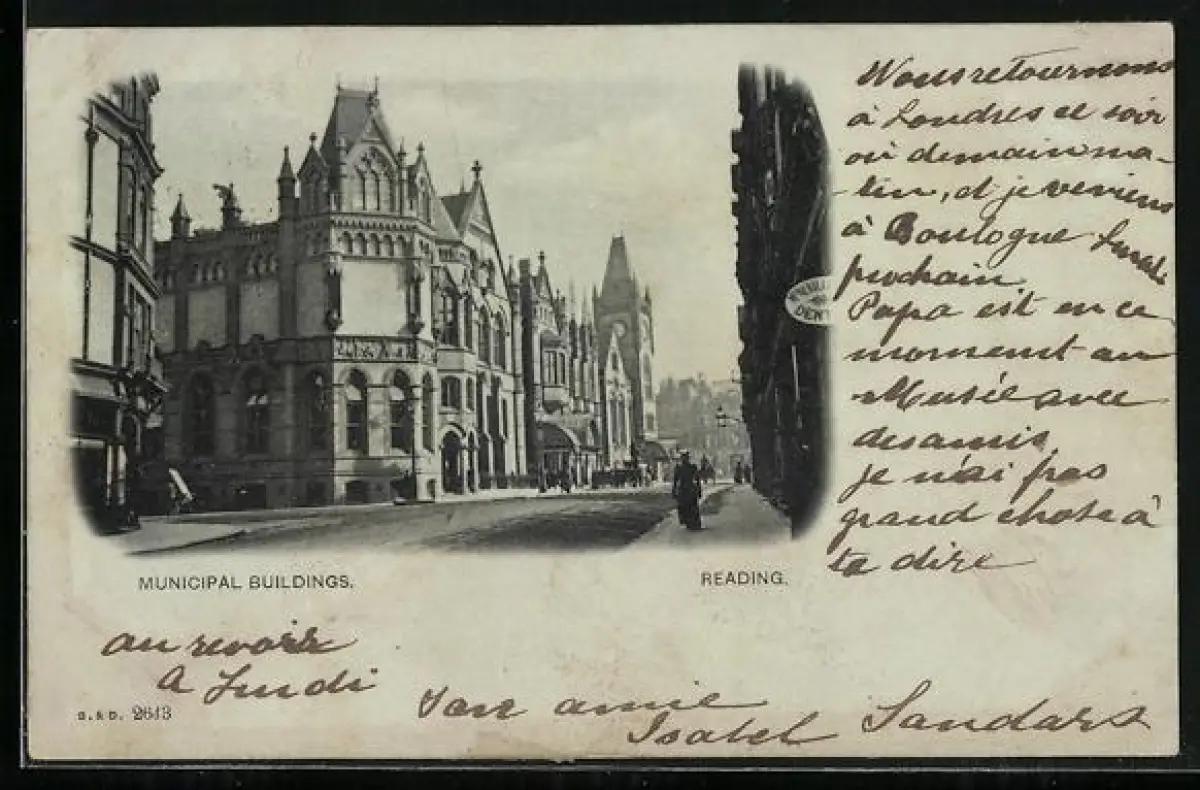 Nous retournons
à Londres ce soir
ou demain ma-
tin, et je reviens
à Boulogne Lundi
prochain.
Papa est en ce
moment au
Musée avec
des amis,
je n'ai pas
grand chose à
te dire
DENT
MUNICIPAL BUILDINGS.
READING.
au revoir
A Lundi
Ton amie
Isabel Sandars
S. & D. 2643